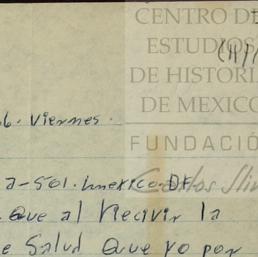 CENTRO DE
ESTUDIOS
DE HISTORIA
DE MEXICO
6. Viernes.
FUNDACIÓ
a-501. mexico. DF
Carlos Slim
que al Recivir la
e Salud Que yo por